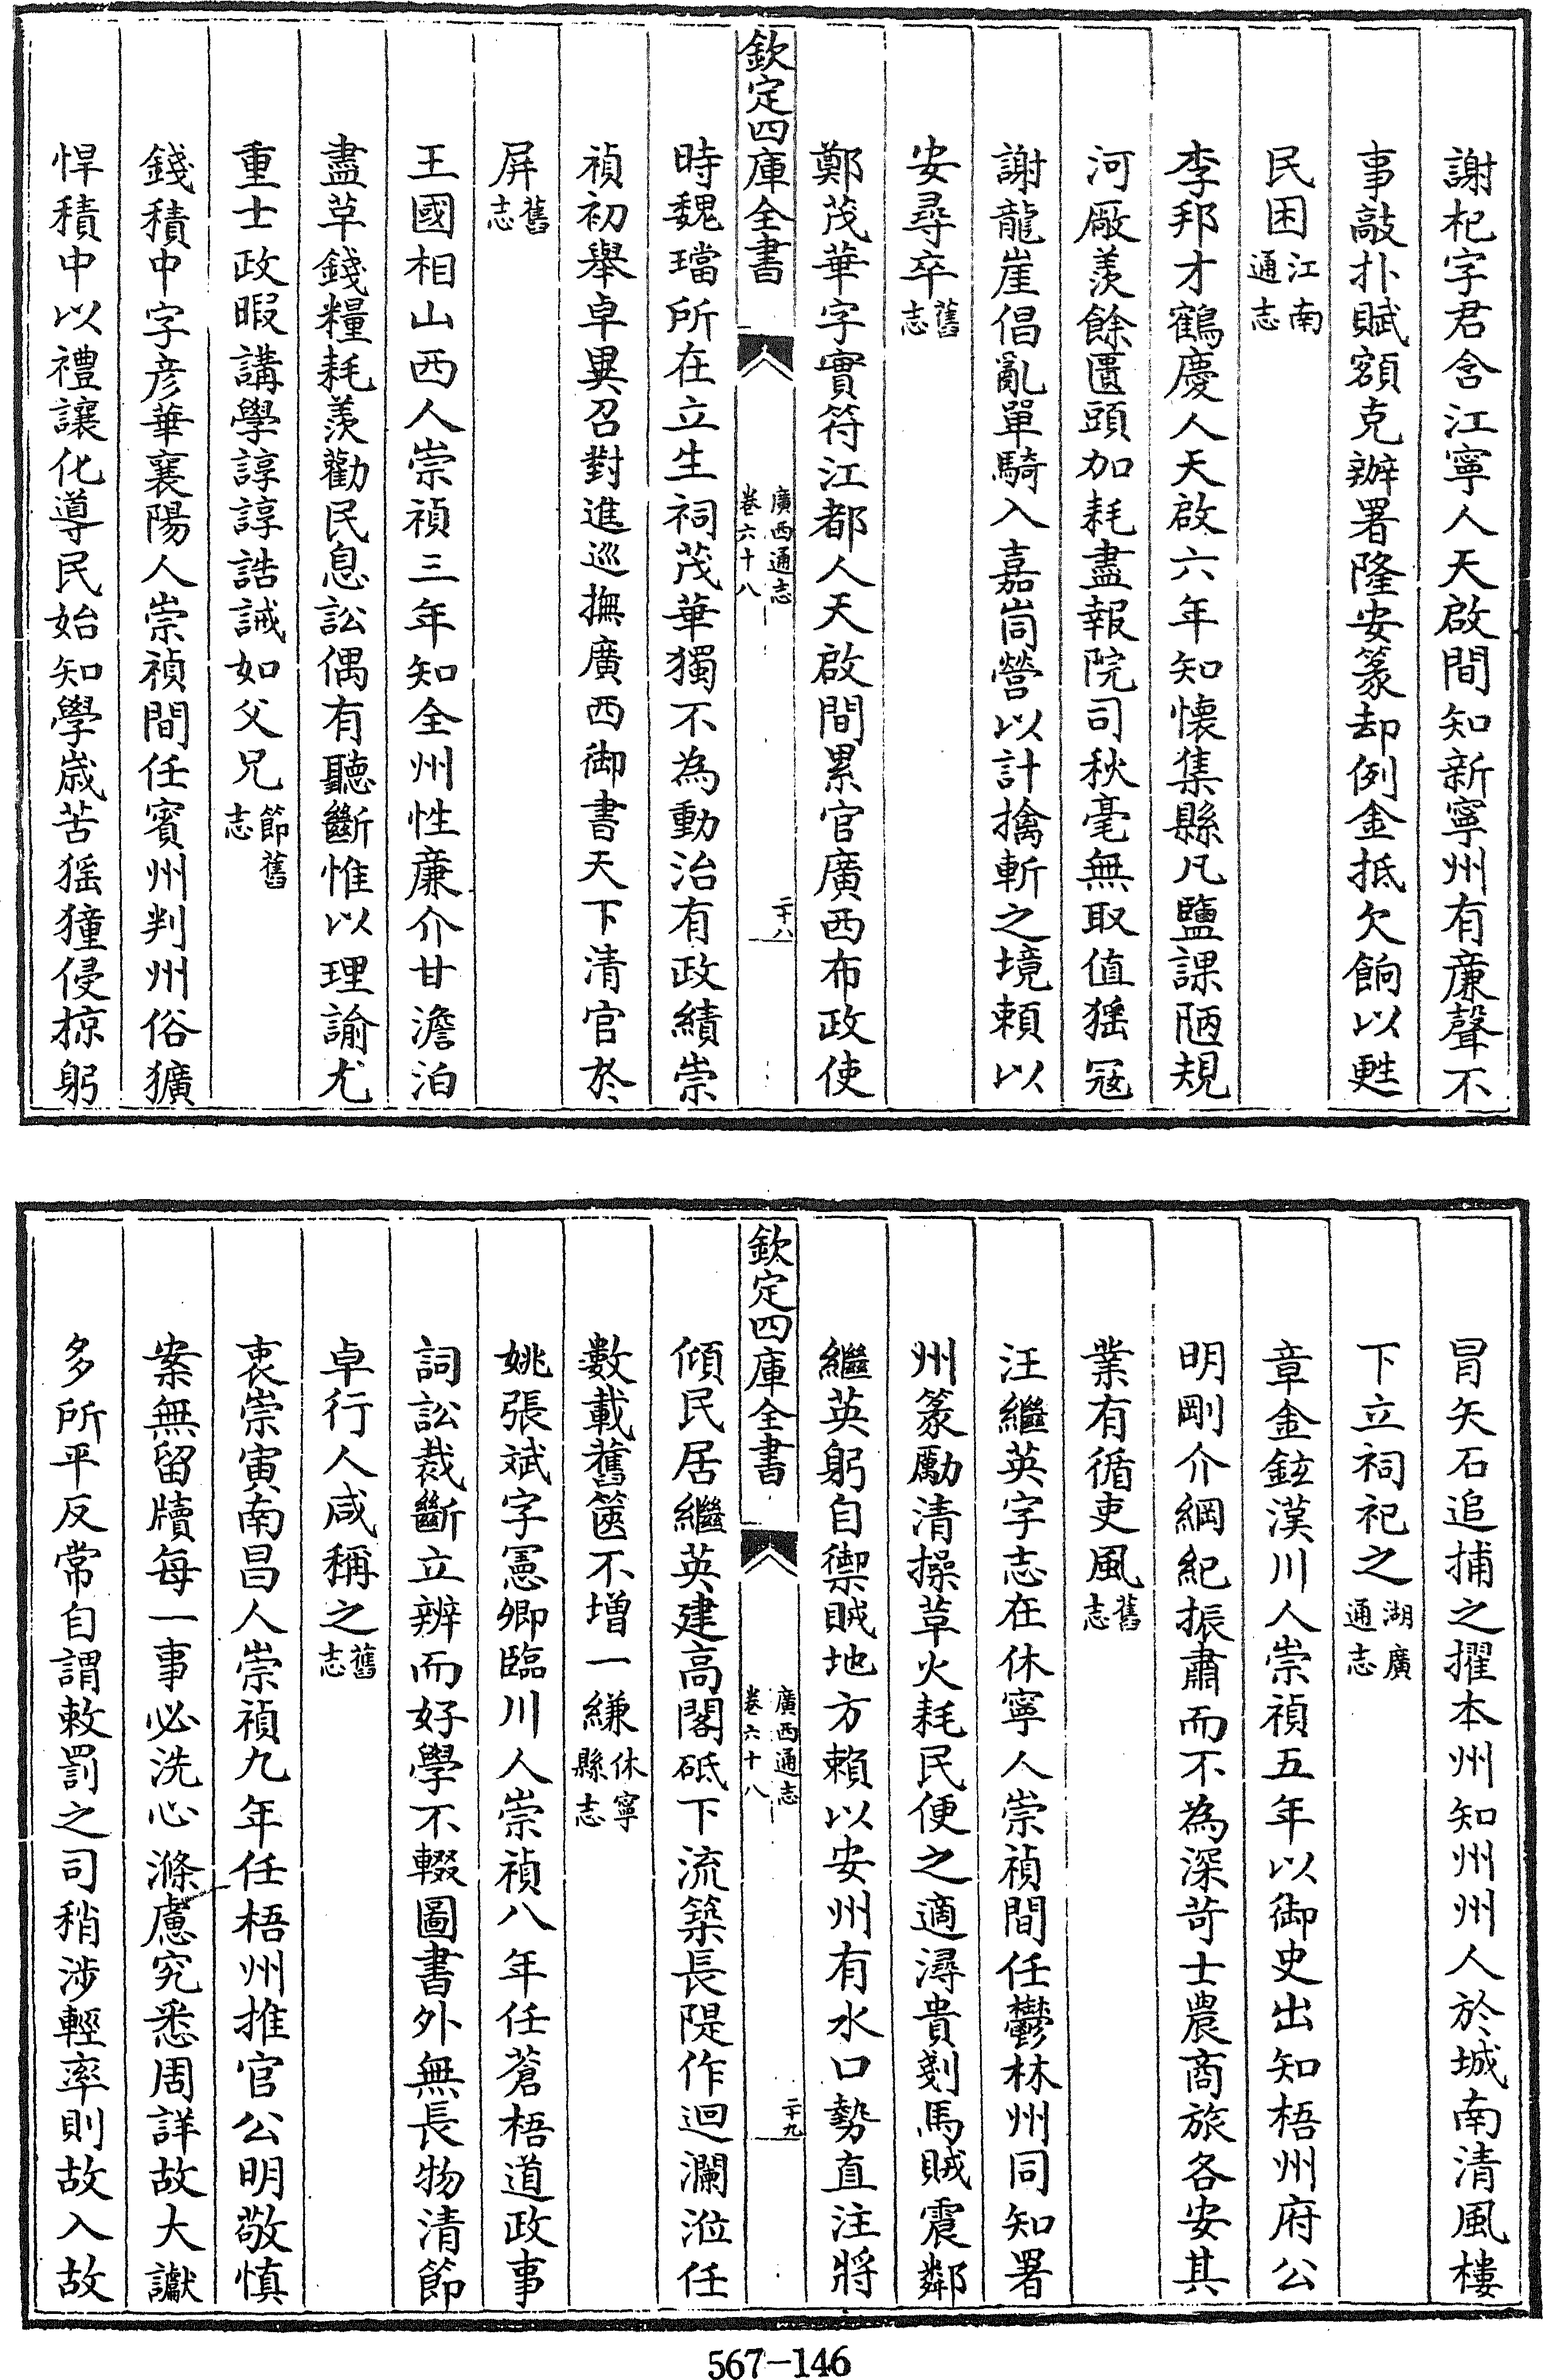 謝杞字君含江寧人天啟間知新寧州有亷聲不
事敲扑賦額克辦署隆安篆却例金抵欠餉以甦
民困江南通志
李邦才鶴慶人天啟六年知懐集縣凡鹽課陋規
河厰羨餘匱頭加耗盡報院司秋毫無取值猺冦
謝龍崖倡亂單騎入嘉峝營以計擒斬之境頼以
安尋卒舊志
鄭茂華字實符江都人天啟間累官廣西布政使
欽定四庫全書
廣西通志
卷六十八
二十八
時魏璫所在立生祠茂華獨不為動治有政績崇
禎初舉卓異召對進巡撫廣西御書天下清官於
屏舊志
王國相山西人崇禎三年知全州性亷介甘澹泊
盡草錢糧耗羨勸民息訟偶有聽斷惟以理諭尤
重士政暇講學諄諄誥誡如父兄節舊志
錢積中字彦華襄陽人崇禎間任賓州判州俗獷
悍積中以禮讓化導民始知學嵗苦猺獞侵掠躬
冒矢石追捕之擢本州知州州人於城南清風樓
下立祠祀之湖廣通志
章金鉉漢川人崇禎五年以御史出知梧州府公
明剛介綱紀振肅而不為深苛士農商旅各安其
業有循吏風舊志
汪繼英字志在休寧人崇禎間任鬱林州同知署
州篆勵清操草火耗民便之適潯貴剗馬賊震鄰
繼英躬自禦賊地方頼以安州有水口勢直注將
欽定四庫全書
廣西通志
卷六十八
二十九
傾民居繼英建高閣砥下流築長隄作迴瀾涖任
數載舊篋不增一縑休寧縣志
姚張斌字憲卿臨川人崇禎八年任蒼梧道政事
詞訟裁斷立辨而好學不輟圖書外無長物清節
卓行人咸稱之舊志
衷崇寅南昌人崇禎九年任梧州推官公明敬慎
案無留牘每一事必洗心滌慮究悉周詳故大讞
多所平反常自謂敕罰之司稍涉輕率則故入故
567-146